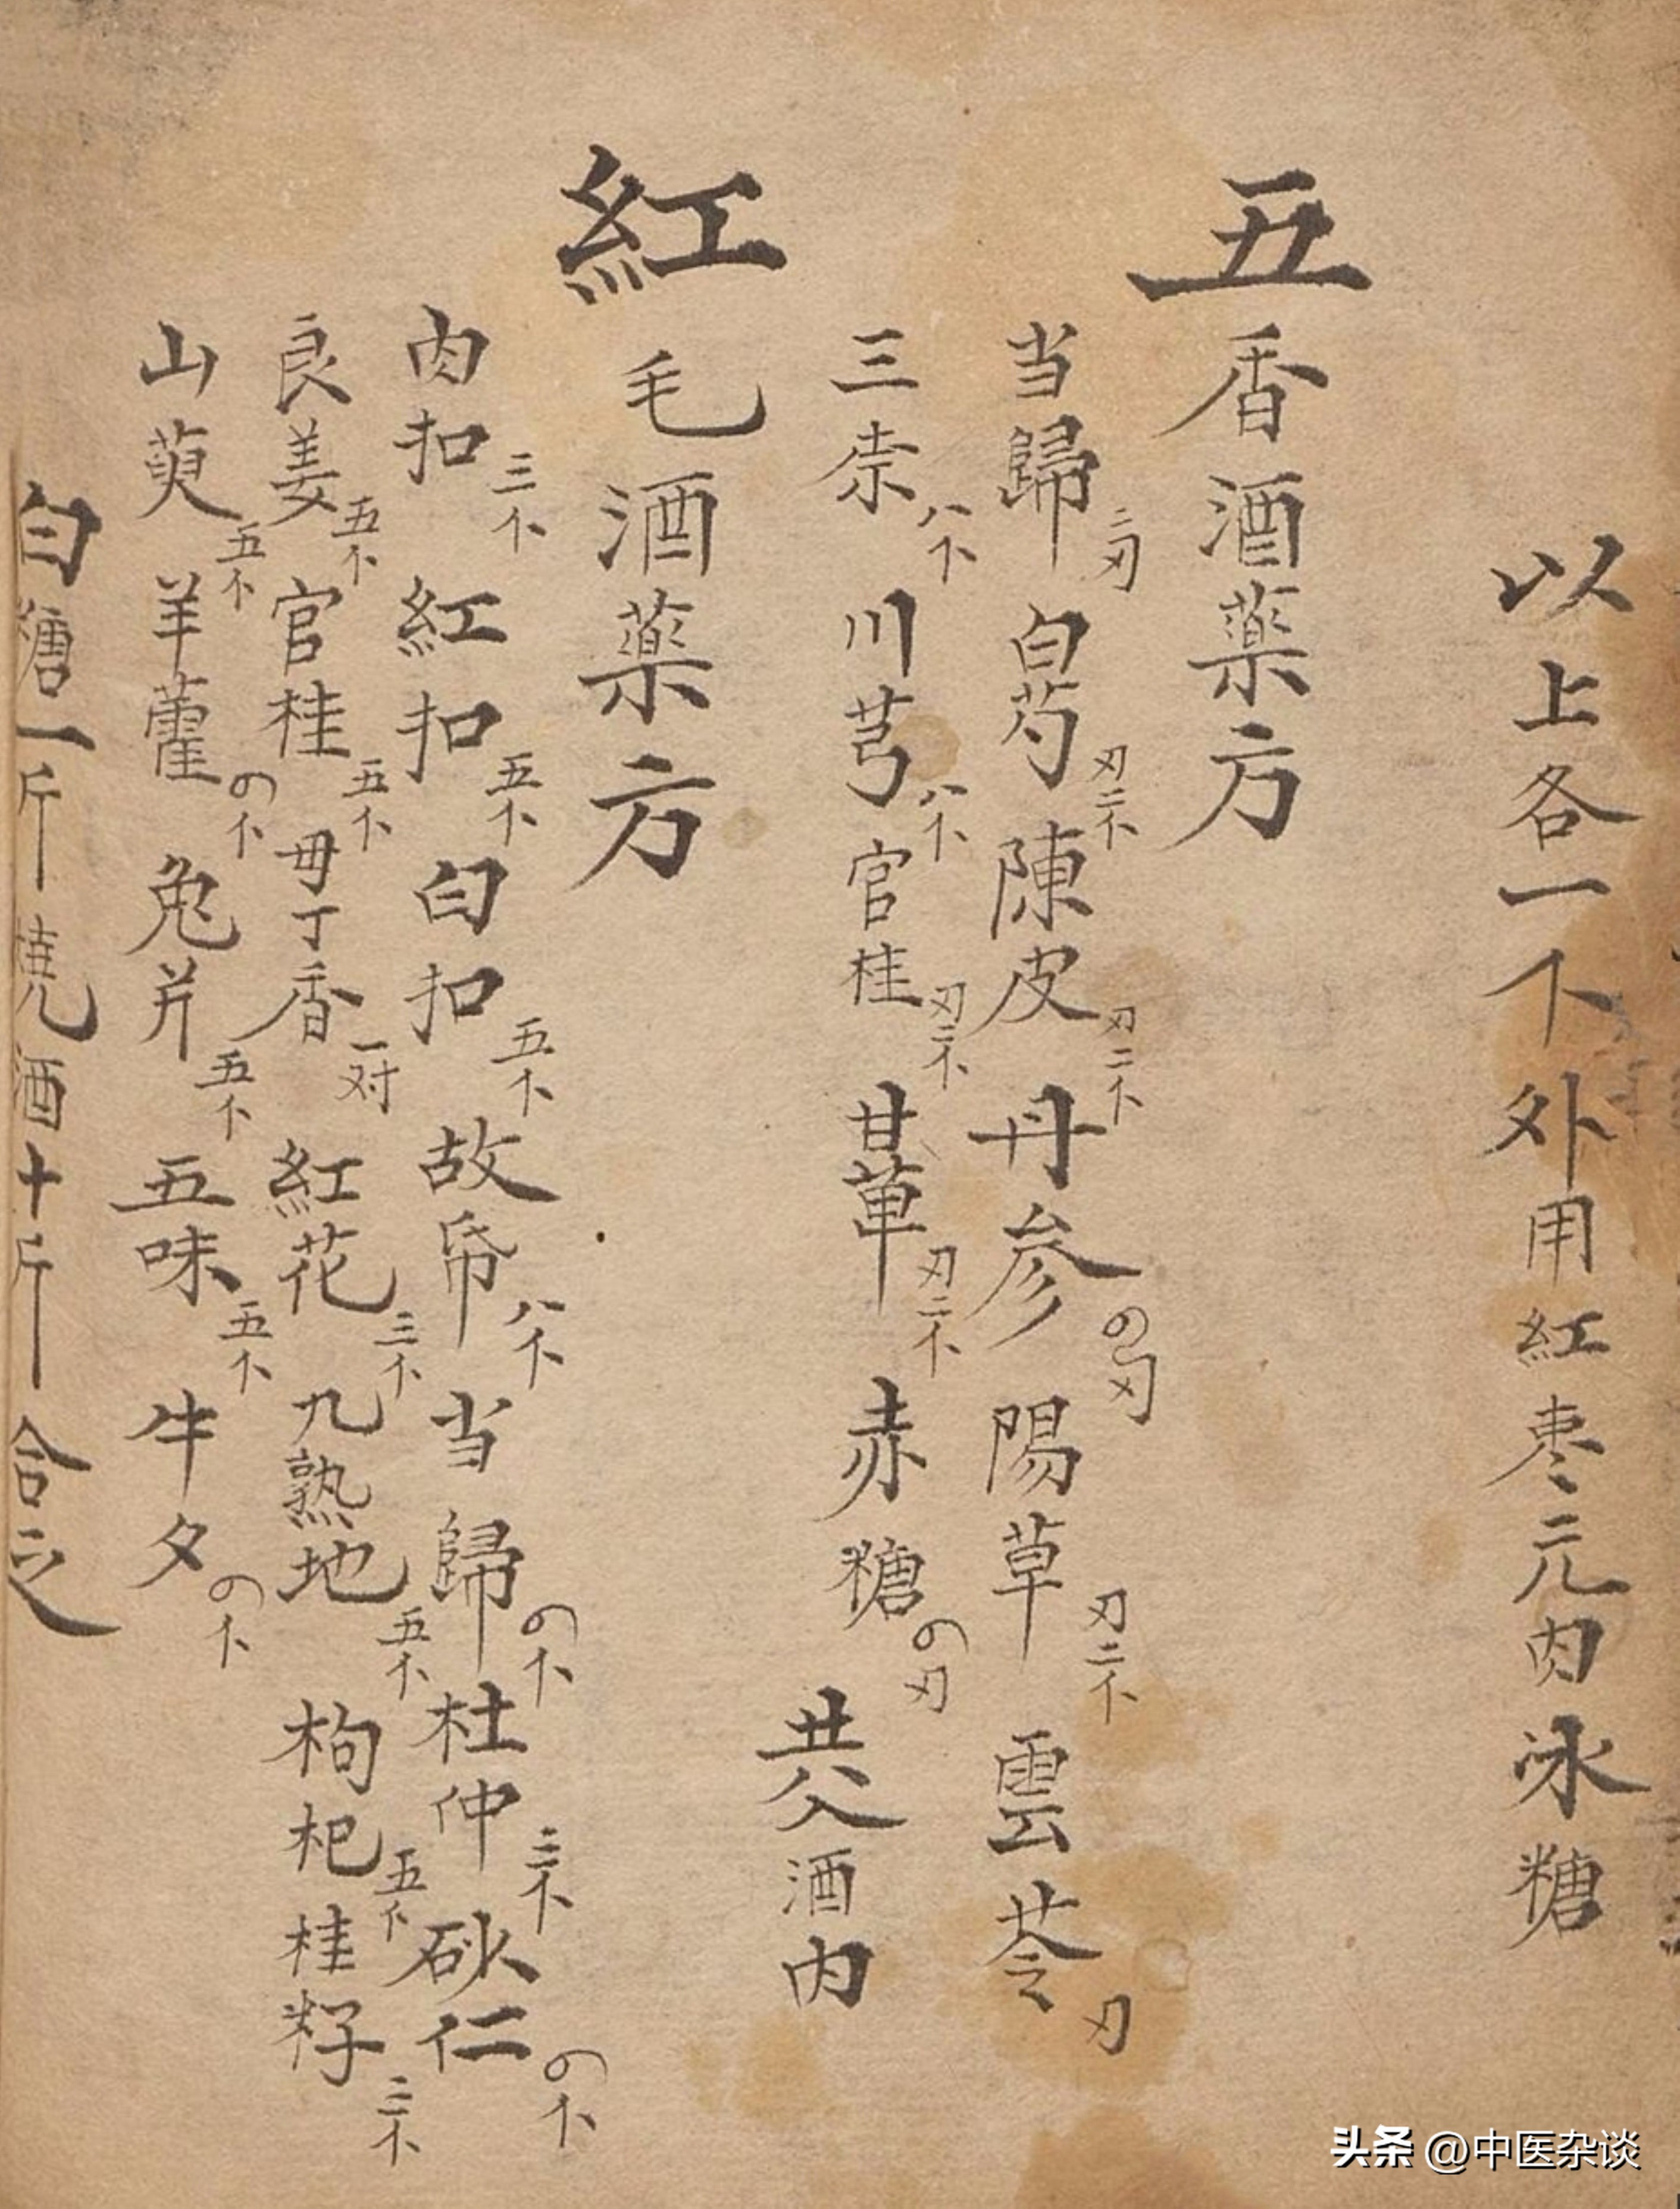 以上各一个外用紅枣元肉冰糖
五香酒薬方
当歸二刃 白芍刃二个 陳皮刃二个 丹参の刃 陽草刃二个 雲苓刃
三柰八个 川芎八个 官桂刃二个 甘草刃二个 赤糖の刃
共入酒内
紅毛酒薬方
肉扣三个 紅扣五个 白扣五个 故帋八个 当歸の个 杜仲三个 砂仁の个
良姜五个 官桂五个 毋丁香一对 紅花三个 九熟地五个 枸杞五个 桂籽三个
山萸五个 羊藿の个 兔片五个 五味五个 牛夕の个
白糖一斤 燒酒十斤 合之
头条 @中医杂谈